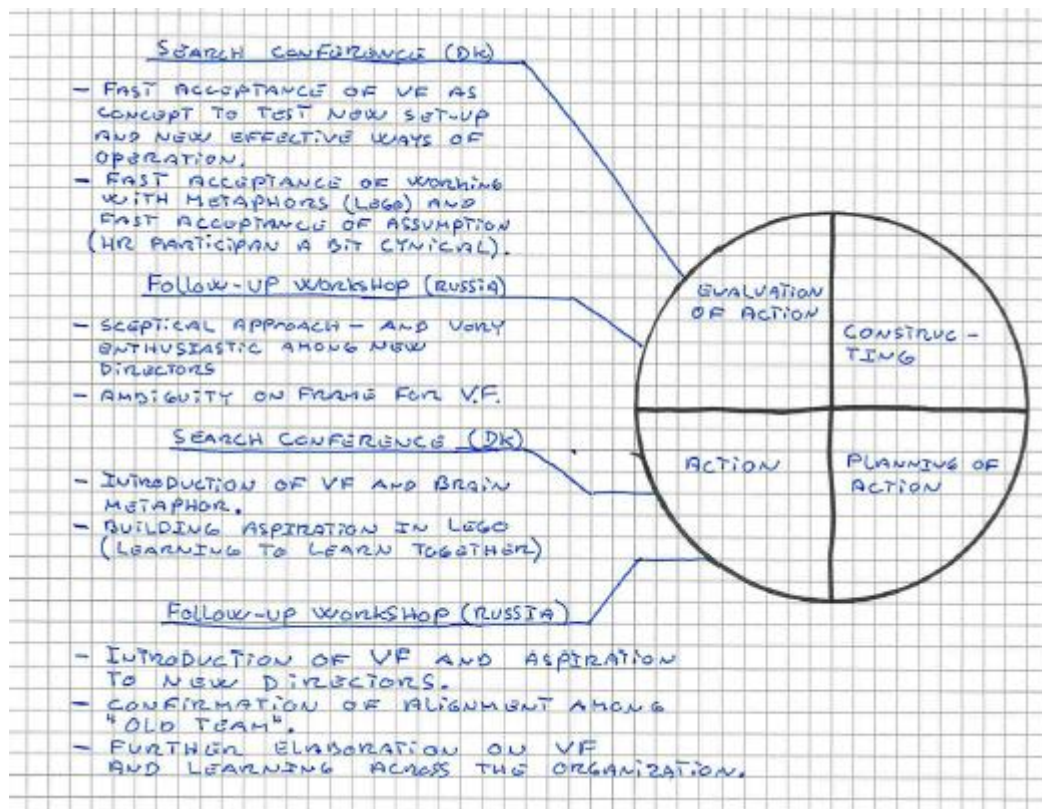 SEARCH CONFERENCE (DK)
- FAST ACCEPTANCE OF VF AS
CONCEPT TO TEST NEW SET-UP
AND NEW EFFECTIVE WAYS OF
OPERATION.
- FAST ACCEPTANCE OF WORKING
WITH METAPHORS (LEGO) AND
FAST ACCEPTANCE OF ASSUMPTION
(HR PARTICIPAN A BIT CYNICAL).
FOLLOW-UP WORKSHOP (RUSSIA)
- SCEPTICAL APPROACH - AND VERY
ENTHUSIASTIC AMONG NEW
DIRECTORS
- AMBIGUITY ON FRAME FOR V.F.
SEARCH CONFERENCE (DK)
- INTRODUCTION OF VF AND BRAIN
METAPHOR.
- BUILDING ASPIRATION IN LEGO
(LEARNING TO LEARN TOGETHER)
FOLLOW-UP WORKSHOP (RUSSIA)
- INTRODUCTION OF VF AND ASPIRATION
TO NEW DIRECTORS.
- CONFIRMATION OF ALIGNMENT AMONG
"OLD TEAM".
- FURTHER ELABORATION ON VF
AND LEARNING ACROSS THE ORGANIZATION.
EVALUATION
OF ACTION
CONSTRUC-
TING
ACTION
PLANNING OF
ACTION